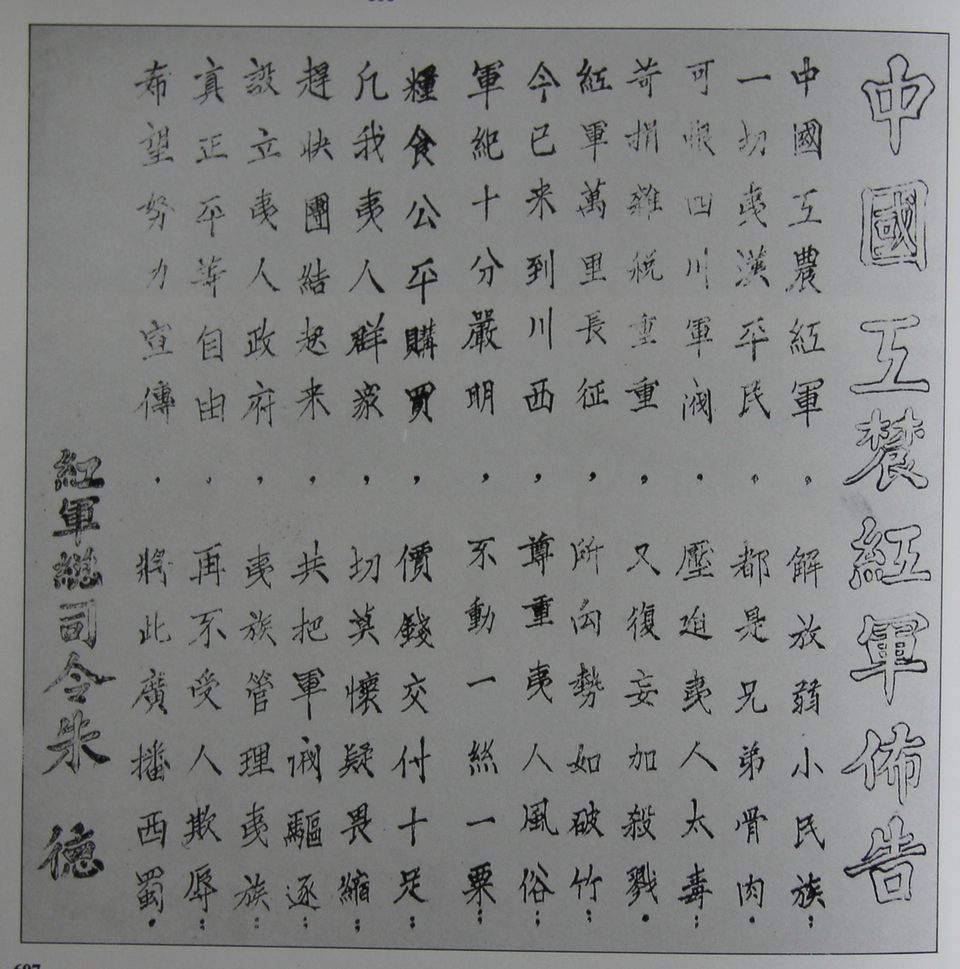 中國工農紅軍佈告
中國工農紅軍，解放弱小民族；
一切夷漢平民，都是兄弟骨肉．
可恨四川軍阀，壓迫夷人太毒；
苛捐雜税重重，又復妄加殺戮．
紅軍萬里長征，所向勢如破竹；
今已来到川西，尊重夷人風俗；
軍紀十分嚴明，不動一絲一粟；
糧食公平購買，價錢交付十足；
凡我夷人群眾，切莫懷疑畏縮；
趕快團結起来，共把軍阀驅逐；
設立夷人政府，夷族管理夷族；
真正平等自由，再不受人欺辱；
希望努力宣傳，將此廣播西蜀．
紅軍總司令朱德
607